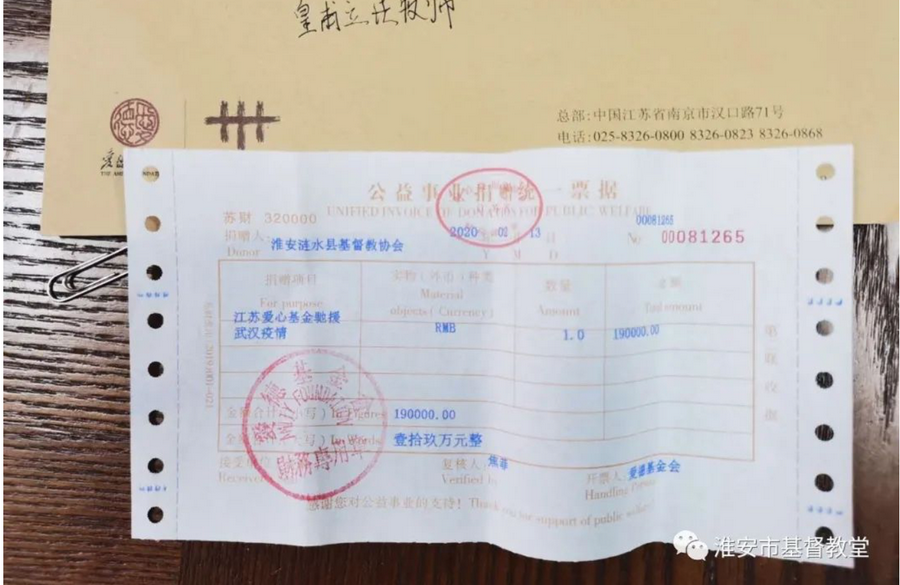 皇甫立沃牧师
总部:中国江苏省南京市汉口路71号
电话:025-8326-0800 8326-0823 8326-0868
公益事业捐赠统一票据
UNIFIED INVOICE OF DONATION FOR PUBLIC WELFARE
苏财 320000
捐赠人: 淮安涟水县基督教协会
Donor
2020 02 13
Y M D
00081265
No 00081265
捐赠项目
For purpose
实物(外币)种类
Material
objects(Currency)
数量
Amount
金额
Total amount
江苏爱心基金驰援
武汉疫情
RMB
1.0
190000.00
金额合计(小写)In Figures
190000.00
壹拾玖万元整
In Words
复核人: 焦
Verified by
开票人: 爱德基金会
Handling Person
感谢您对公益事业的支持!Thank you for support of public welfare
爱德基金会
AMITY FOUNDATION
财務專用章
淮安市基督教堂